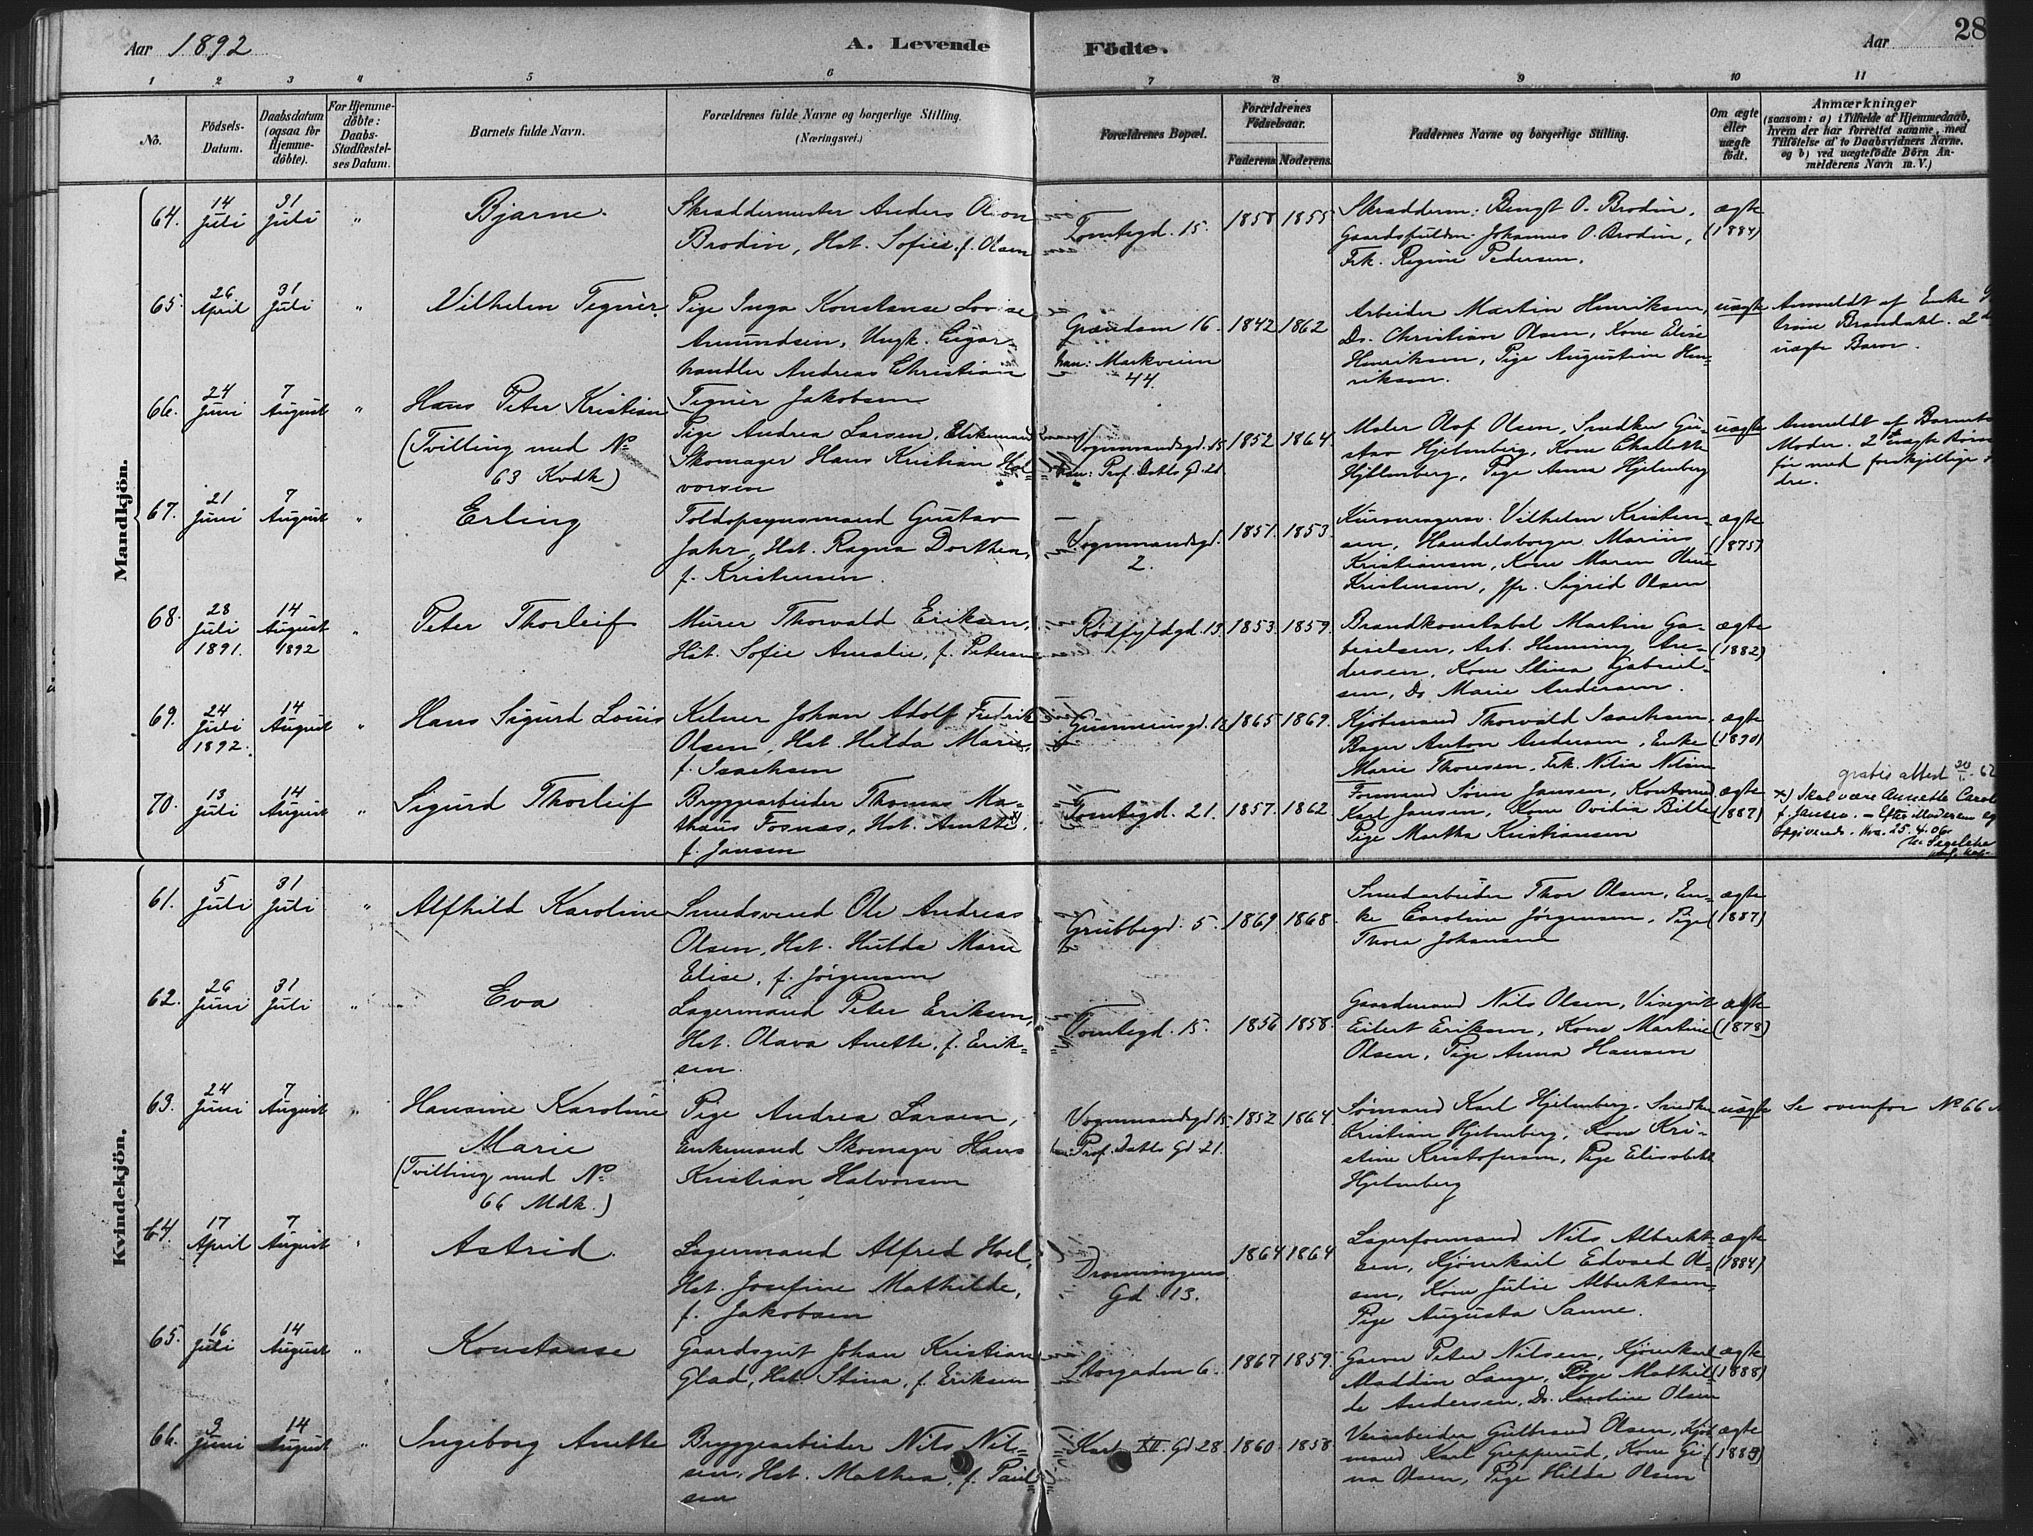 Aar 1892
A. Levende Födte.
Aar
28
1 2 3 4 5 6 7 8 9 10 11
No.
Födsels-Datum.
Daabsdatum (ogsaa för Hjemme-döbte).
For Hjemme-döbte: Daabs-Stadfæstel-ses Datum.
Barnets fulde Navn.
Forældrenes fulde Navne og borgerlige Stilling.
(Næringsvei.)
Forældrenes Bopæl.
Forældrenes Födselsaar.
Faderens. Moderens.
Faddernes Navne og borgerlige Stilling.
Om ægte eller uægte födt.
Anmærkninger
(saasom: a) i Tilfælde af Hjemmedaab, hvem der har forrettet samme, med Tilföielse af to Daabsvidners Navne. og b) ved uægtefödte Börn An-melderens Navn m. V.)
Mandkjön.
64. 14 Juli 31 Juli " Bjarne.
Skræddermester Anders Olson
Brodin, Hst. Sofie f. Olsen
Tomtegd. 15. 1858 1855
Skrædderm. Bengt O. Brodin,
Johannes O. Brodin,
Frk. Regine Pedersen.
ægte (1884)
65. 26 April 31 Juli " Vilhelm Tegnèr.
Pige Inga Konstanse Lovise
Amundsen, Ungk. Cigar-
handler Andreas Christian
Tegnèr Jakobsen
Grændsen 16. 1842 1862
han: Markveien
44.
Arbeider Martin Henriksen,
Do. Christian Olsen, Kone Elise
Henriksen, Pige Augustine Hen-
riksen.
uægte
Anmeldt af Enke
Brandahl. 2
uægte Barn.
66. 24 Juni 7 August " Hans Peter Kristian
(Tvilling med No
63 Kvdk)
Pige Andrea Larsen, Enkemand
Skomager Hans Kristian Hal-
vorsen
Vognmandsgd. 15 1852 1864
han: Prof. Dahls Gd. 21.
Maler Olof Olsen, Snedker Gu-
stav Hjelmberg, Kone
Hjelmberg, Pige Anna Hjelmberg
uægte
Anmeldt af Barnets
Moder. 2 uægte Börn
för med forskjellige
dre.
67. 21 Juni 7 August " Erling
Toldopsynsmand Gustav
Jahr, Hst. Ragna Dorthea,
f. Kristensen.
Vognmandsgd. 2. 1851. 1853.
Kurvmagersv. Vilhelm Kristen-
sen, Handelsborger Marius
Kristiansen, Kone Maren Oline
Kristensen, Jfr. Sigrid Olsen
ægte (1875)
68. 28 Juli 1891. 14 August 1892 " Peter Thorleif
Murer Thorvald Eriksen,
Hst. Sofie Amalie, f. Petersen
Rödfyldgd. 13. 1853. 1859.
Brandkonstabel Martin Ga-
brielsen, Arb. Henning An-
dersen, Kone Stina Gabriel-
sen, Do Marie Andersen.
ægte (1882)
69. 24 Juli 1892. 14 August " Hans Sigurd Louis
Kelner Johan Adolf Fredrik
Olsen, Hst. Hilda Marie,
f. Isachsen
1865 1869.
Kjöbmand Thorvald Isachsen,
Bager Anton Andersen, Enke
Marie Thoresen, Frk. Nilia Nilsen
ægte (1890)
70. 13 Juli 14 August " Sigurd Thorleif
Bryggearbeider Thomas Ma-
thæus Fosnæs, Hst. Anette x)
f. Jansen
Tomtegd. 21. 1857. 1862
Formand Sören Jansen, Kontorm.
Karl Jansen, Kone Ovidia Bille
Pige Martha Kristiansen
ægte (1887)
gratis attest 62
x) Skal være Annette Carol
f. Jansen. - Efter Moderens
Opgivende. 25.4.06.
Kvindekjön.
61. 5 Juli 31 Juli " Alfhild Karoline
Smedsvend Ole Andreas
Olsen, Hst. Hulda Marie
Elise, f. Jörgensen
Grubbegd. 5. 1869 1868.
Smedarbeider Thor Olsen, En-
ke Caroline Jörgensen, Pige
Thora Johansen
ægte (1887)
62. 26 Juni 31 Juli " Eva
Lagermand Peter Eriksen,
Hst. Olava Anette, f. Erik-
sen.
Tomtegd. 15. 1856 1858.
Gaardmand Nils Olsen, Visergut
Eilert Eriksen, Kone Martine
Olsen, Pige Anna Hansen
ægte (1878)
63. 24 Juni 7 August " Hansine Karoline
Marie
(Tvilling med No
66 Mdk.)
Pige Andrea Larsen,
Enkemand Skomager Hans
Kristian Halvorsen
Vognmandsgd 15 1852 1864
Prof. Dahls Gd 21.
Sömand Karl Hjelmberg, Snedker
Kristian Hjelmberg, Kone Kri-
stine Kristofersen, Pige Elisabeth
Hjelmberg
uægte
Se ovenfor No 66
64. 17 April 7 August " Astrid.
Lagermand Alfred Hoel,
Hst. Josefine Mathilde,
f. Jakobsen
Dronningens
Gd 13. 1864 1864
Lagerformand Nils Albrekt-
sen, Kjörerkarl Edvard Ol-
sen, Kone Julie Albrektsen
Pige Augusta Sanne.
ægte (1884)
65. 16 Juli 14 August " Konstanse
Gaardsgut Johan Kristian
Glad, Hst. Stina, f. Eriksen
Storgaden 6. 1867 1859.
Garver Peter Nilsen, Kjörerkarl
Lange, Pige Mathil-
de Andersen, Do. Karoline Olsen
ægte (1888)
66. 9 Juni 14 August " Ingeborg Anette
Bryggearbeider Nils Nils-
sen, Hst. Mathea, f. Paul
sen
Karl XII. Gd 28 1860 1858
Gulbrand Olsen, Kjöb
mand Karl Grepperud, Kone Gi-
na Olsen, Pige Hilda Olsen
ægte (1883)